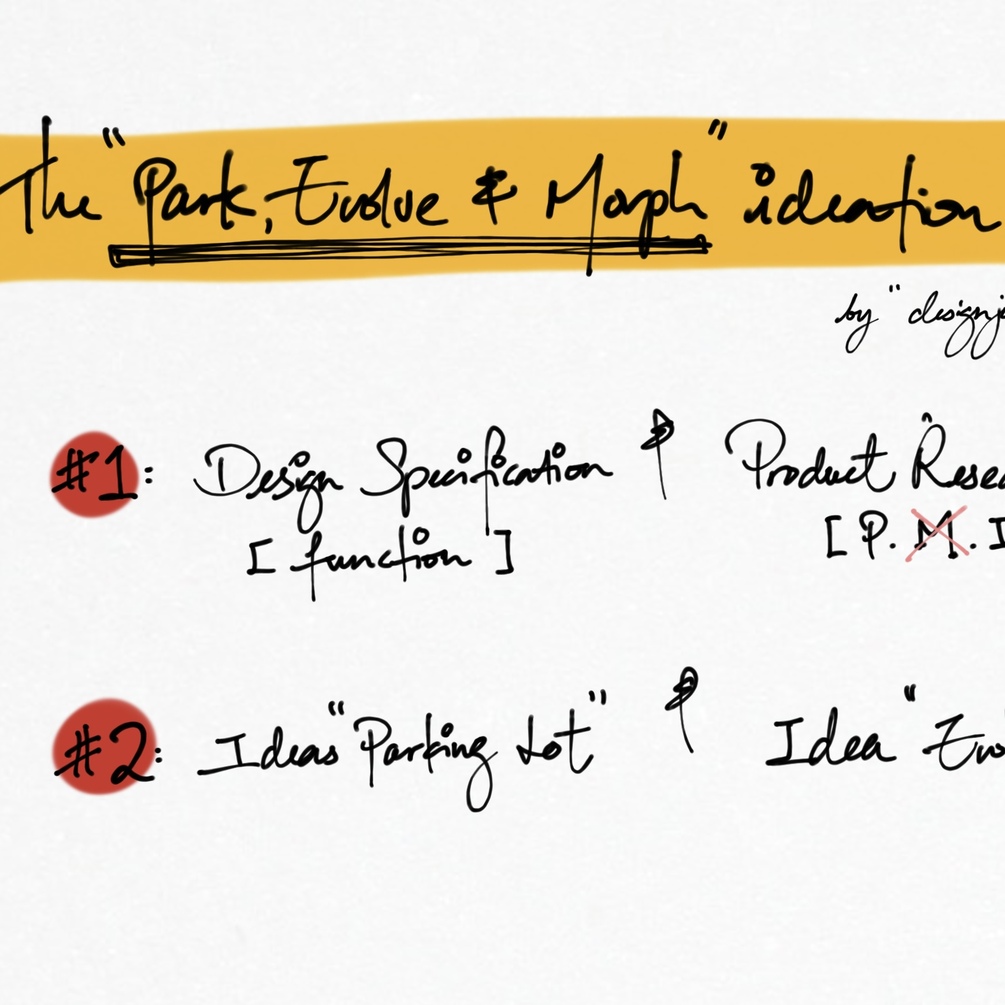 The "Park, Evolve & Morph" ideation
by "designj
#1: Design Specification & Product Resea
[function] [P. M. I
#2: Ideas "Parking Lot" & Idea "Evo